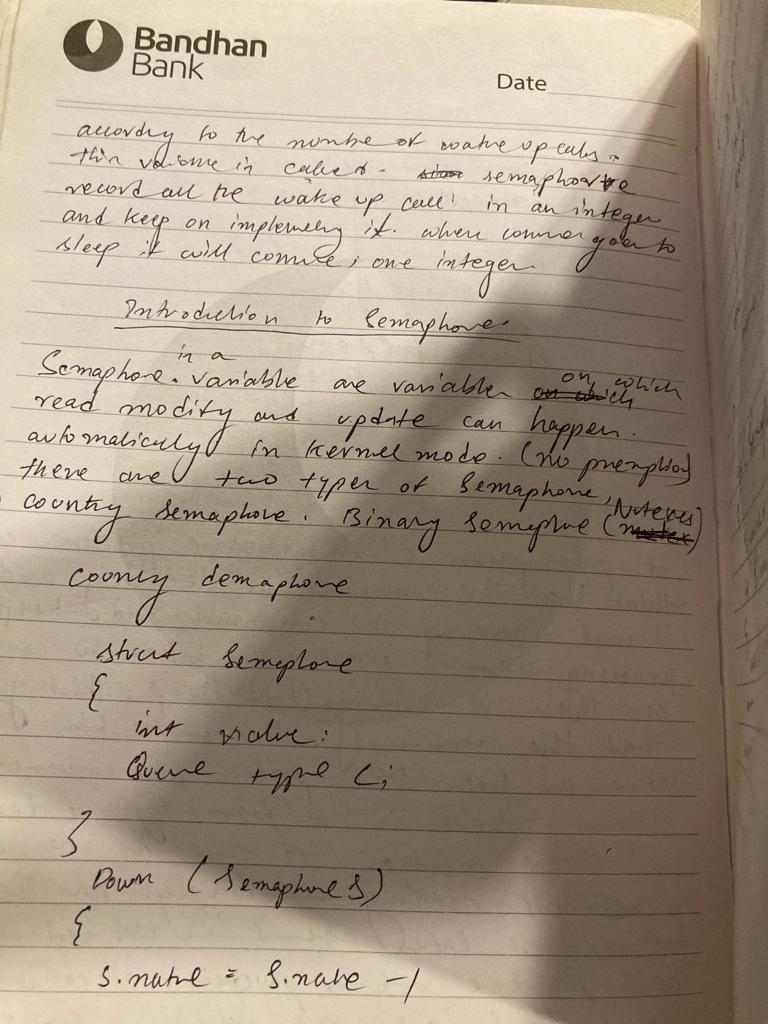 Bandhan
Bank
Date
according to the number of wake up calls.
this variable is called. semaphore
record all the wake up call in an integer
and keep on implementing it. when consumer goes to
sleep it will consume, one integer
Introduction to Semaphore.
in a
Semaphore. variable are variables on which on which
read modify and update can happen.
automatically in Kernel mode. (no premption)
there are two types of Semaphore,
country semaphore. Binary Semaphore (Mutexes)
county demaphore
struct Semaphore
{
int value:
Queue type L;
}
Down (Semaphore S)
{
S.value = S.value -1